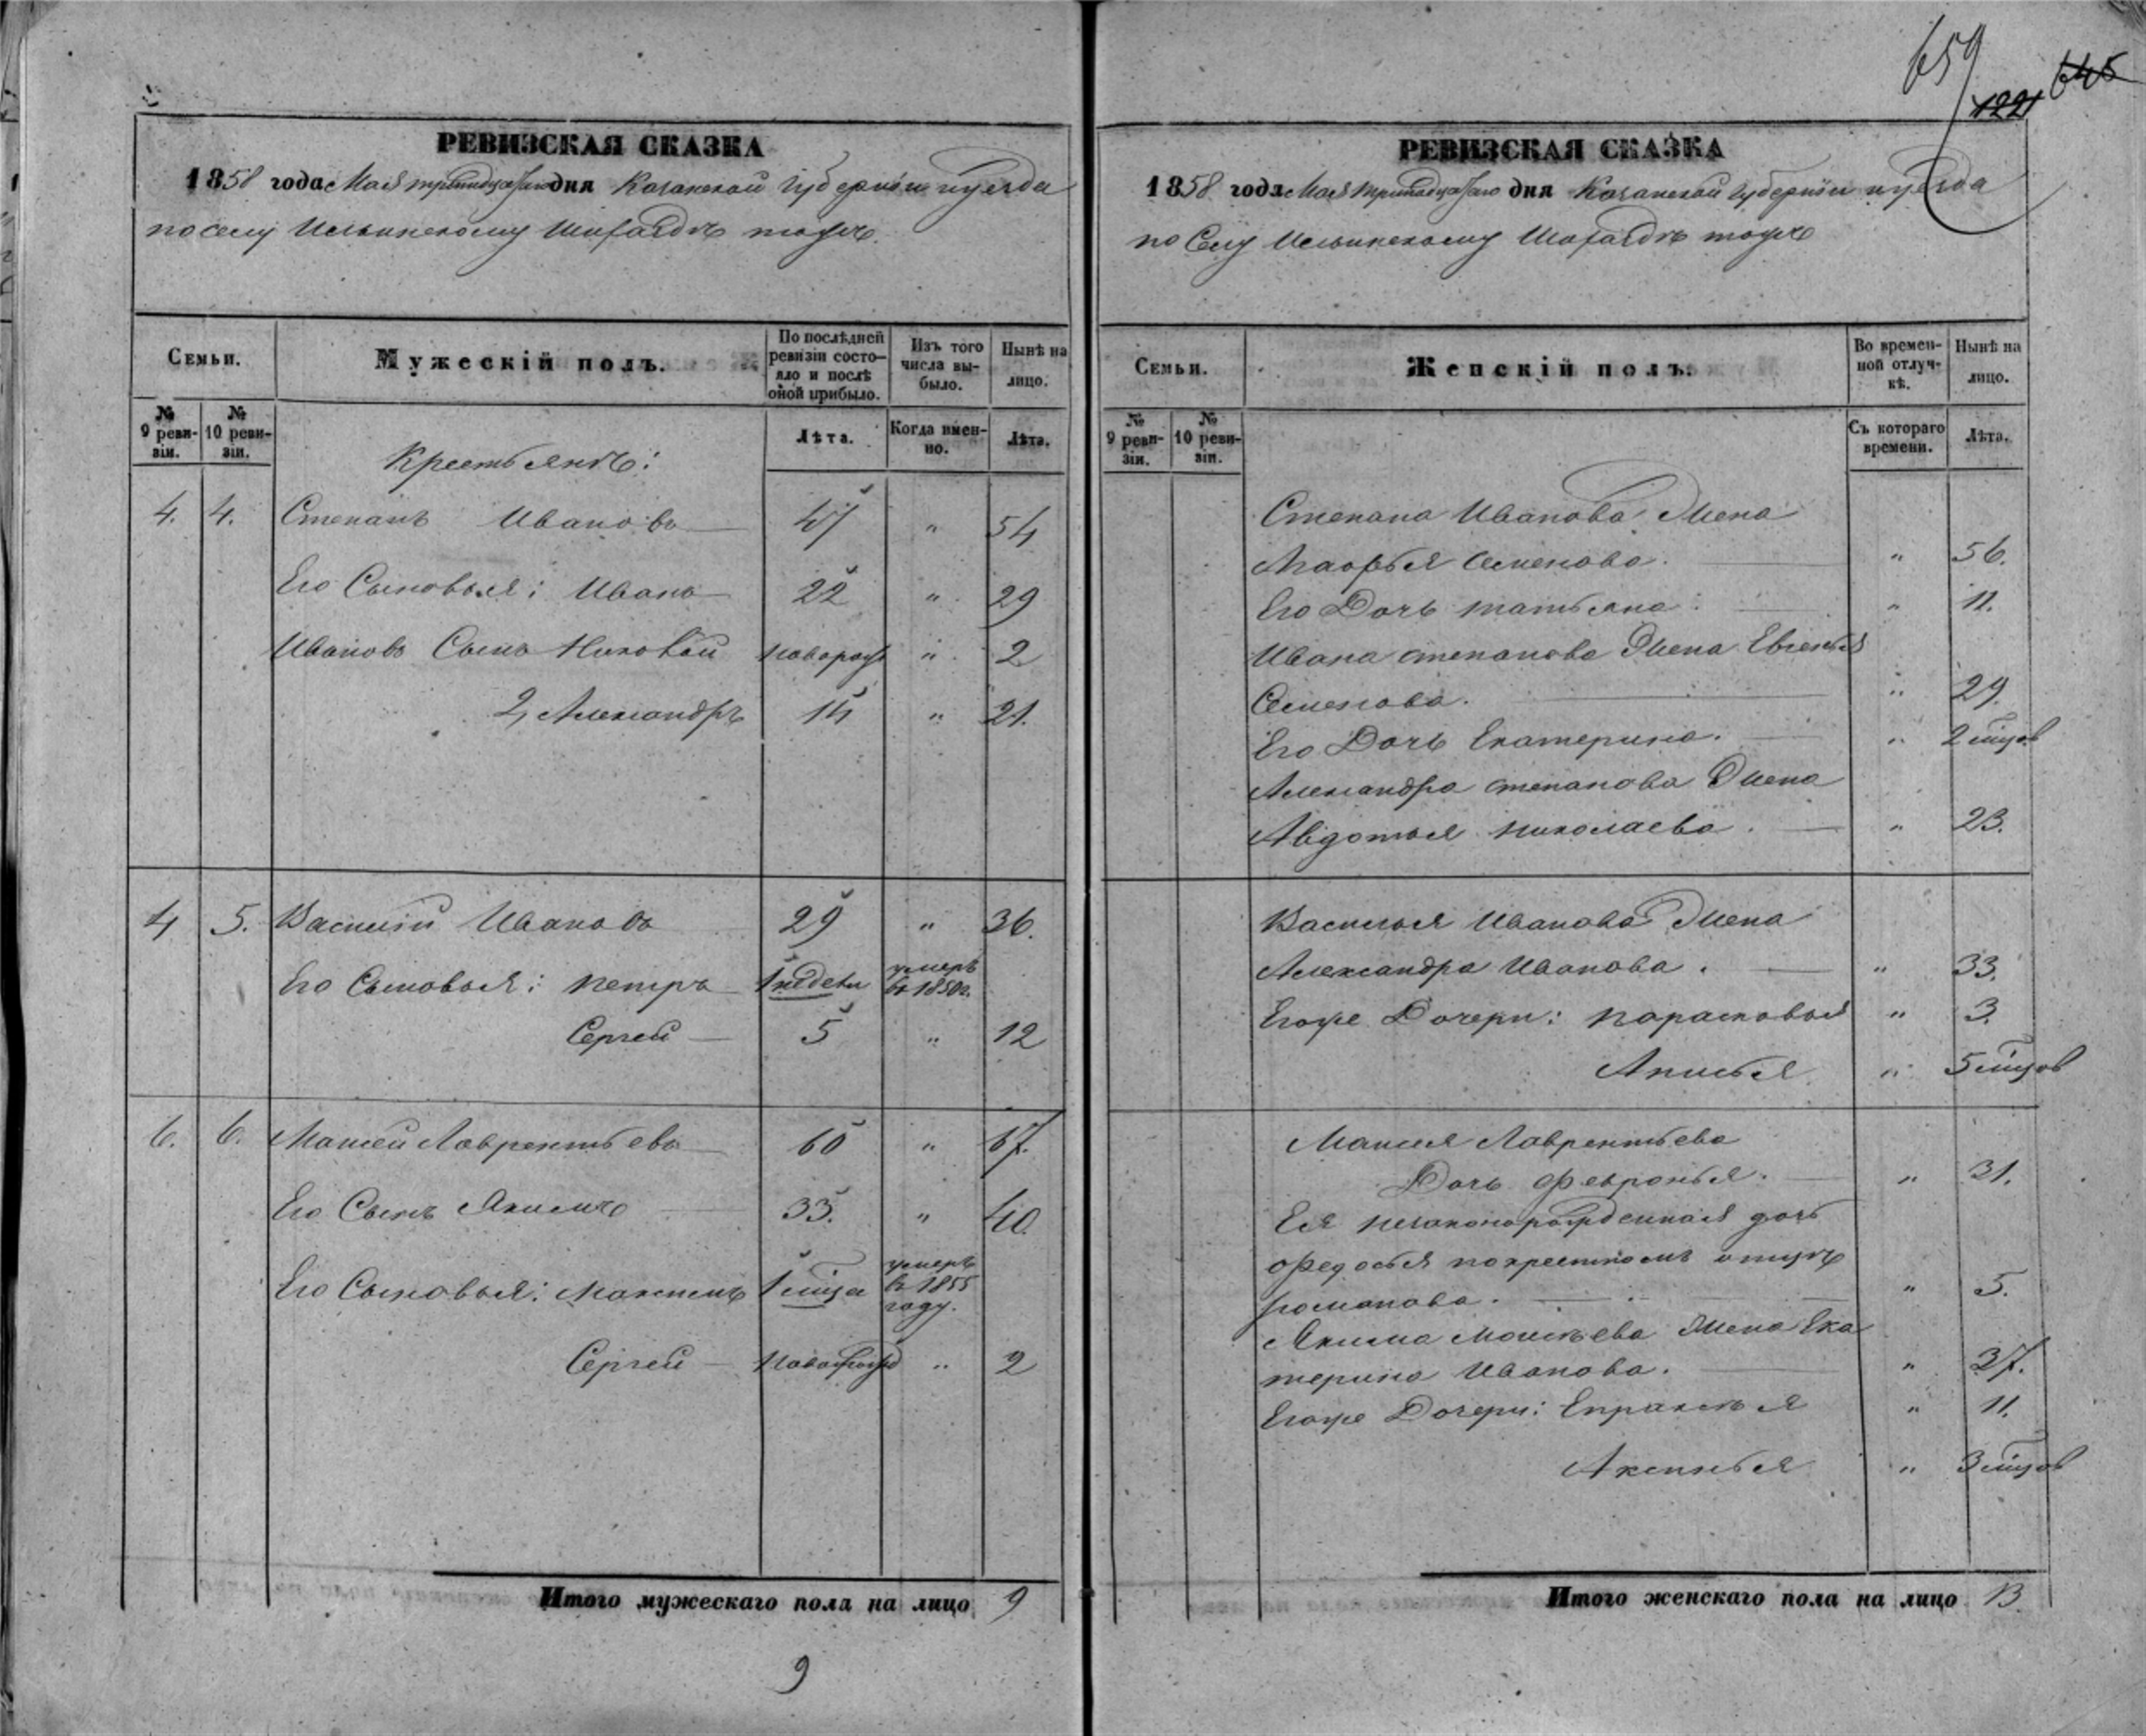 659
122
645
РЕВИЗСКАЯ СКАЗКА
1858 года Мая тринадцатаго дня Казанской Губернiи и уезда
по селу Ильинскому Шигаядѣ тожъ.
Семьи.
Мужескiй полъ.
По послѣдней ревизiи состояло и послѣ оной прибыло.
Изъ того числа выбыло.
Нынѣ на лицо.
№ 9 ревизiи.
№ 10 ревизiи.
Лѣта.
Когда именно.
Лѣта.
Крестьянъ:
4. 4. Степанъ Ивановъ 47 " 54
Его Сыновья: Иванъ 22 " 29
Ивановъ Сынъ Николай новорож " 2
2, Александръ 14 " 21.
4 5. Василiй Ивановъ 29 " 36.
Его Сыновья: Петръ 1 недели умеръ въ 1850 г.
Сергей 5 " 12
6. 6. Моисей Лаврентьевъ 60 " 67.
Его Сынъ Якимъ 33. " 40.
Его Сыновья: Максимъ 1 мѣсца умеръ въ 1855 году.
Сергей новорожд " 2
Итого мужескаго пола на лицо 9
9
РЕВИЗСКАЯ СКАЗКА
1858 года Мая тринадцатаго дня Казанской Губернiи и уезда
по Селу Ильинскому тожъ
Семьи.
Женскiй полъ.
Во временной отлучкѣ.
Нынѣ на лицо.
№ 9 ревизiи.
№ 10 ревизiи.
Съ котораго времени.
Лѣта.
Степана Иванова Жена
Марфья Семенова. " 56.
Его Дочь татьяна. " 11.
Ивана степанова Жена Евгенья
Семенова. " 29.
Его Дочь Екатерина. " 2 мѣсцов
Александра степанова Жена
Авдотья николаева. " 23.
Василья Иванова Жена
Александра Иванова. " 33.
Егоже Дочери: Парасковья " 3.
Анисья " 5 мѣсцов
Моисея Лаврентьева
Дочь Февронья. " 31.
Ея незаконорожденная дочь
Федосья по крестномъ отцѣ
романова. " 5.
Якима Моисеева Жена Ека
терина Иванова. " 37.
Егоже Дочери: Епраксья " 11.
Аксинья " 3 мѣсцов
Итого женскаго пола на лицо 13.